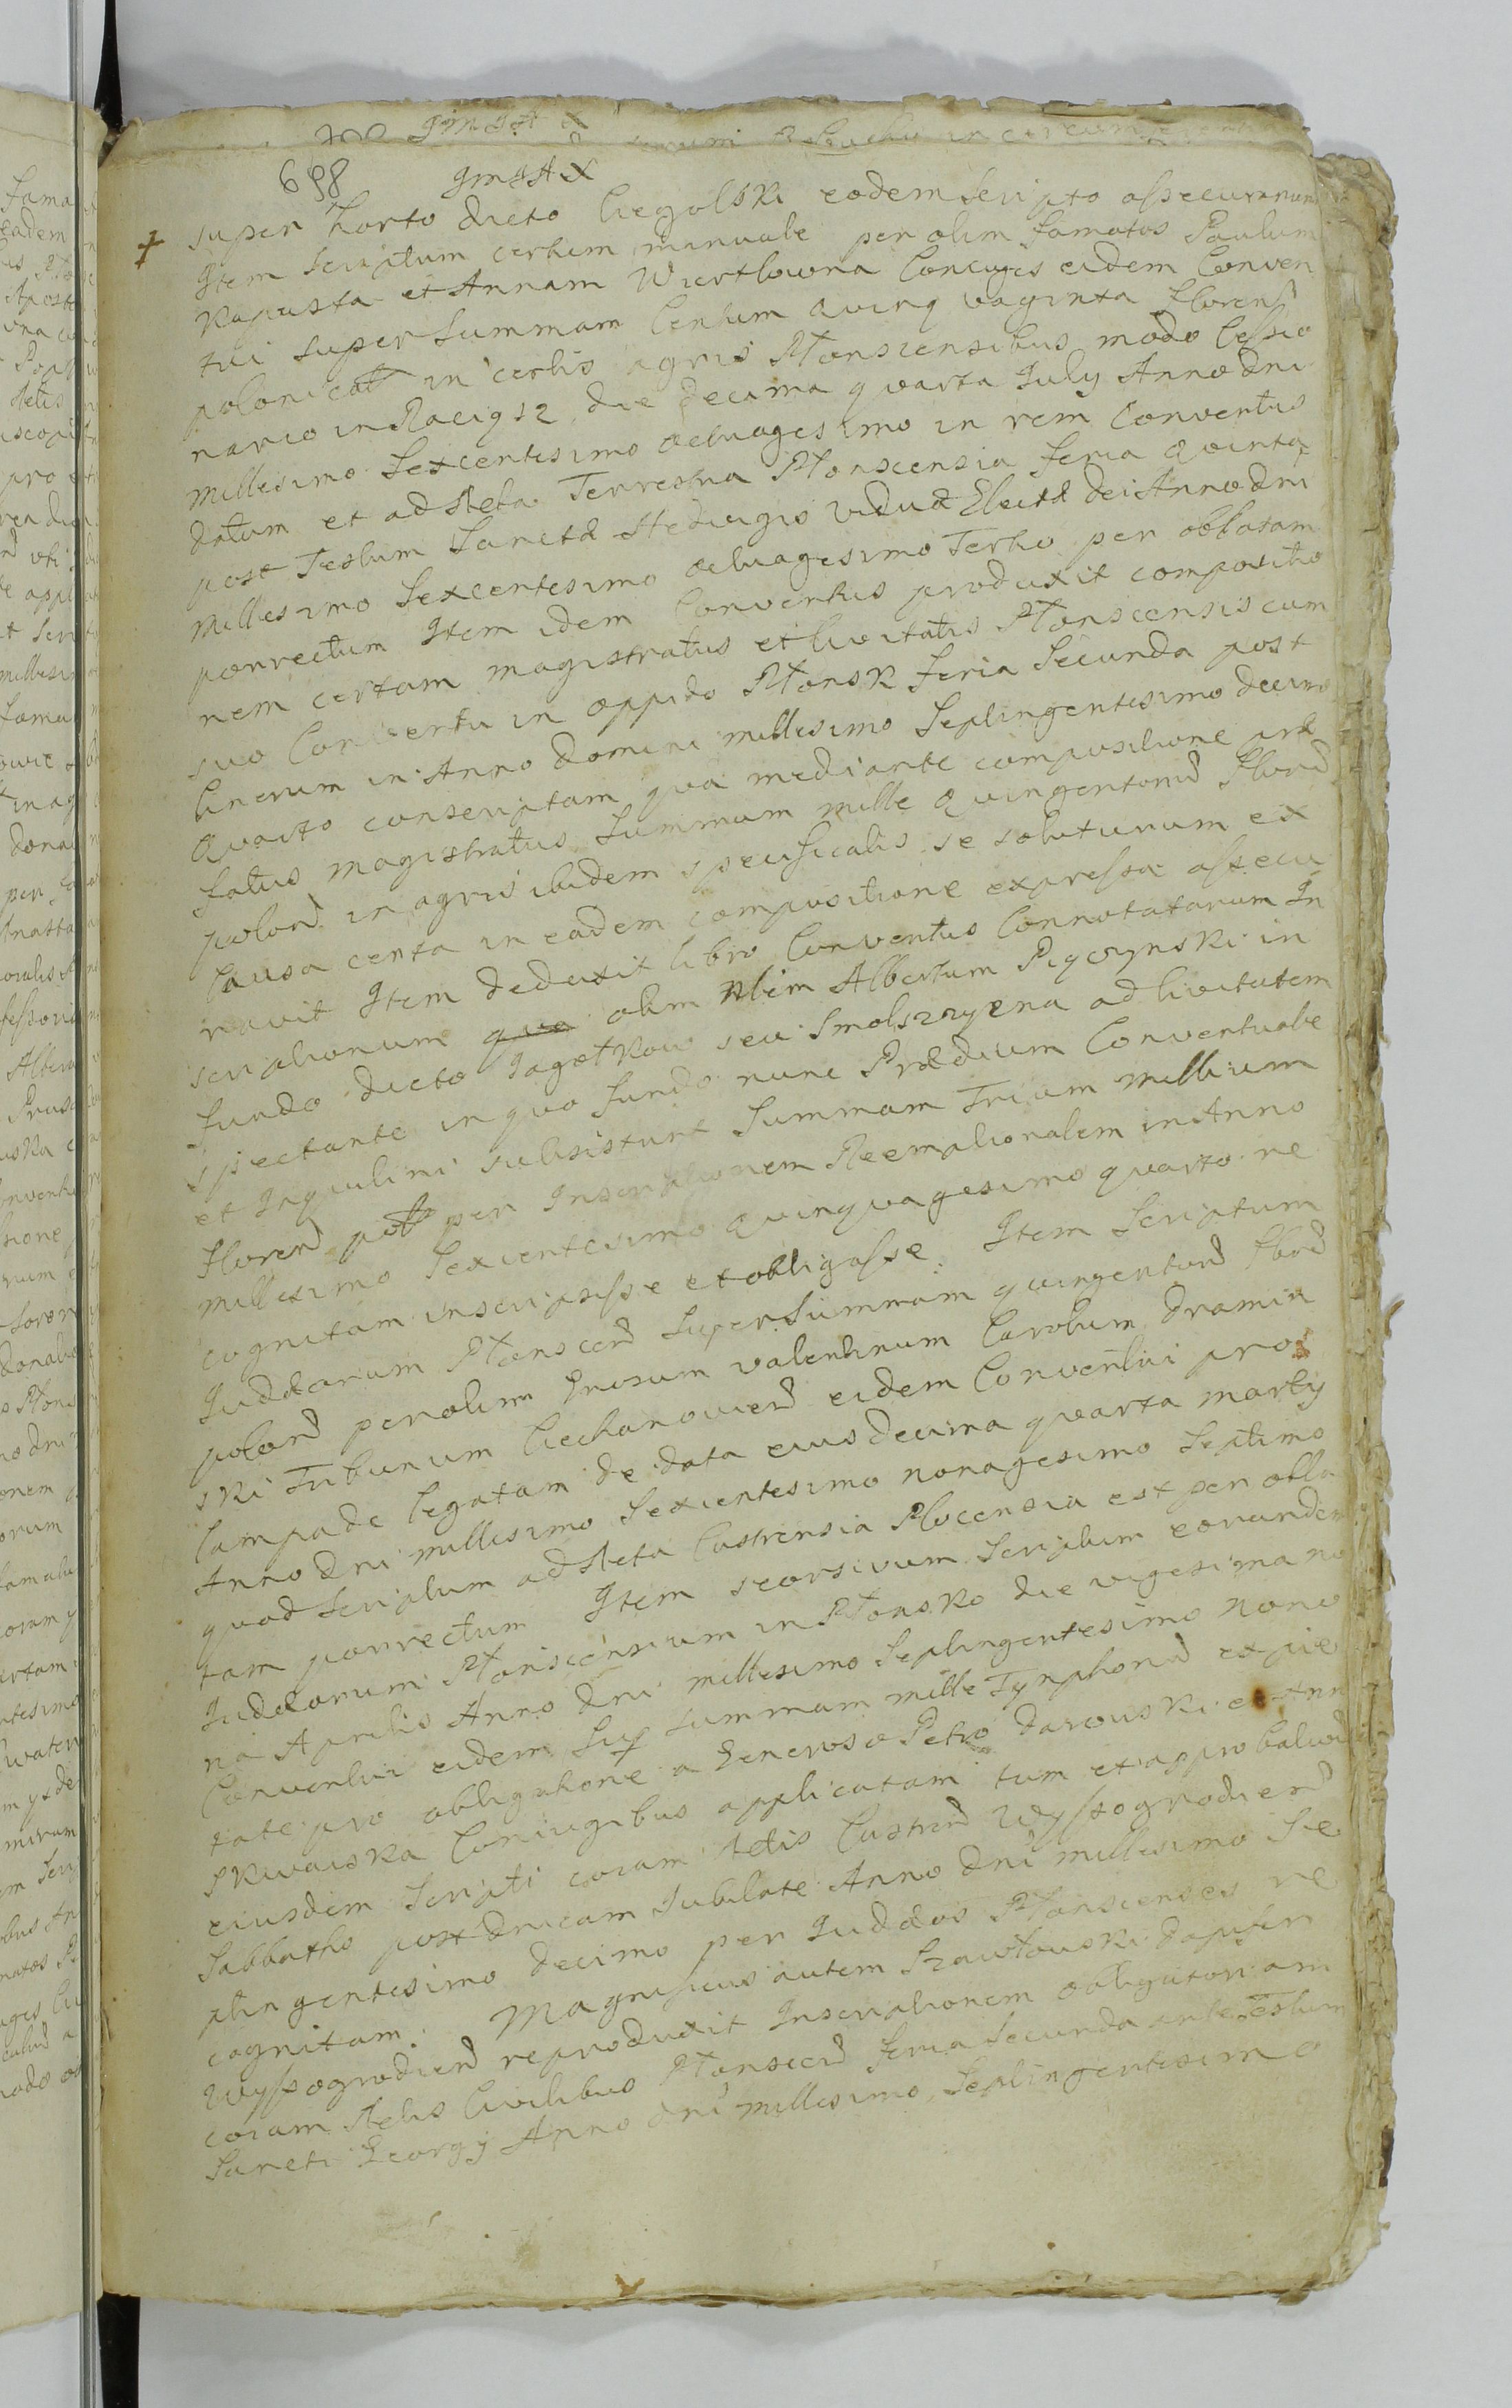 698 JMJA
super horto dicto Cegolski eodem scripto assecuratum
+ Item scriptum certum manuale per olim famatos Paulum
Kapusta et Annam Wiertlowna Coniuges eidem Conven
tui super summam Centum quinquaginta Floren
polonical in certis agris Płonscensibus modo Cessio
nario in Raciąsz die decima quarta July Anno Dni
millesimo Sexcentesimo octuagesimo in rem Conventus
datum et ad Acta Terrestria Płonscensia feria quinta
post Festum Sanctæ Hedvigis viduæ Electæ Dei Anno Dni
millesimo Sexcentesimo octuagesimo Tertio per oblatam
porrectum Item idem Conventus produxit compositio
nem certam magistratus et Civitatis Płonscensis cum
suo Conventu in oppido Płonsk feria Secunda post
Cinerum in Anno Domini millesimo Septingentesimo decimo
quarto conscriptam qva mediante compositione præ
fatus magistratus Summam mille quingentorū Florū
polonū in agris ibidem specificatis se soluturum ex
Causa certa in eadem compositione expressa assecu
ravit Item deduxit libro Conventus Connotatarum In
scriptionum olim Nblem Albertum Pięczynski in
fundo dicto seu ad Civitatem
spectante in quo fundo nunc Prædium Conventuale
et Inquilini subsistunt Summam Trium millium
Florenū pol per Inscriptionem Reemptionalem in Anno
millesimo Sexcentesimo quinquagesimo quarto re
cognitam inscripsisse et obligasse. Item Scriptum
Judæorum Płonscenū super Summam quingentorū Florū
polonū per olim Gnosum Valentinum Carolum Dramin
ski Tribunum Ciechanoviensū eidem Conventui pro
Lampade legatam de data eius decima quarta marty
Anno Dni millesimo Sexcentesimo nonagesimo Septimo
quod scriptum ad Acta Castrensia Plocensia est per obla
tam porrectum Item seorsivum Scriptum eorundem
Judæorum Płonscensium in Płonsko die vigesima no
na Aprilis Anno Dni millesimo Septingentesimo nono
Conventui eidem Sup summam mille Tynphonū ex pie
tate pro obligatione a Generoso Petro Darowski et Ann
Skwarska Coniugibus applicatam tum et approbatione
eiusdem Scripti coram Actis Castrenū Wyssogrodienū
Sabbatho post dnicam Jubilate Anno Dni millesimo Se
ptingentesimo decimo per Judæos Płonscenses re
cognitam. Magnificus autem Szawłowski Dapifer
Wyssogrodienū reproduxit Inscriptionem obligatoriam
coram Actis Civilibus Płonscenū feria Secunda ante Festum
Sancti Georgy Anno Dni millesimo Septingentesimo